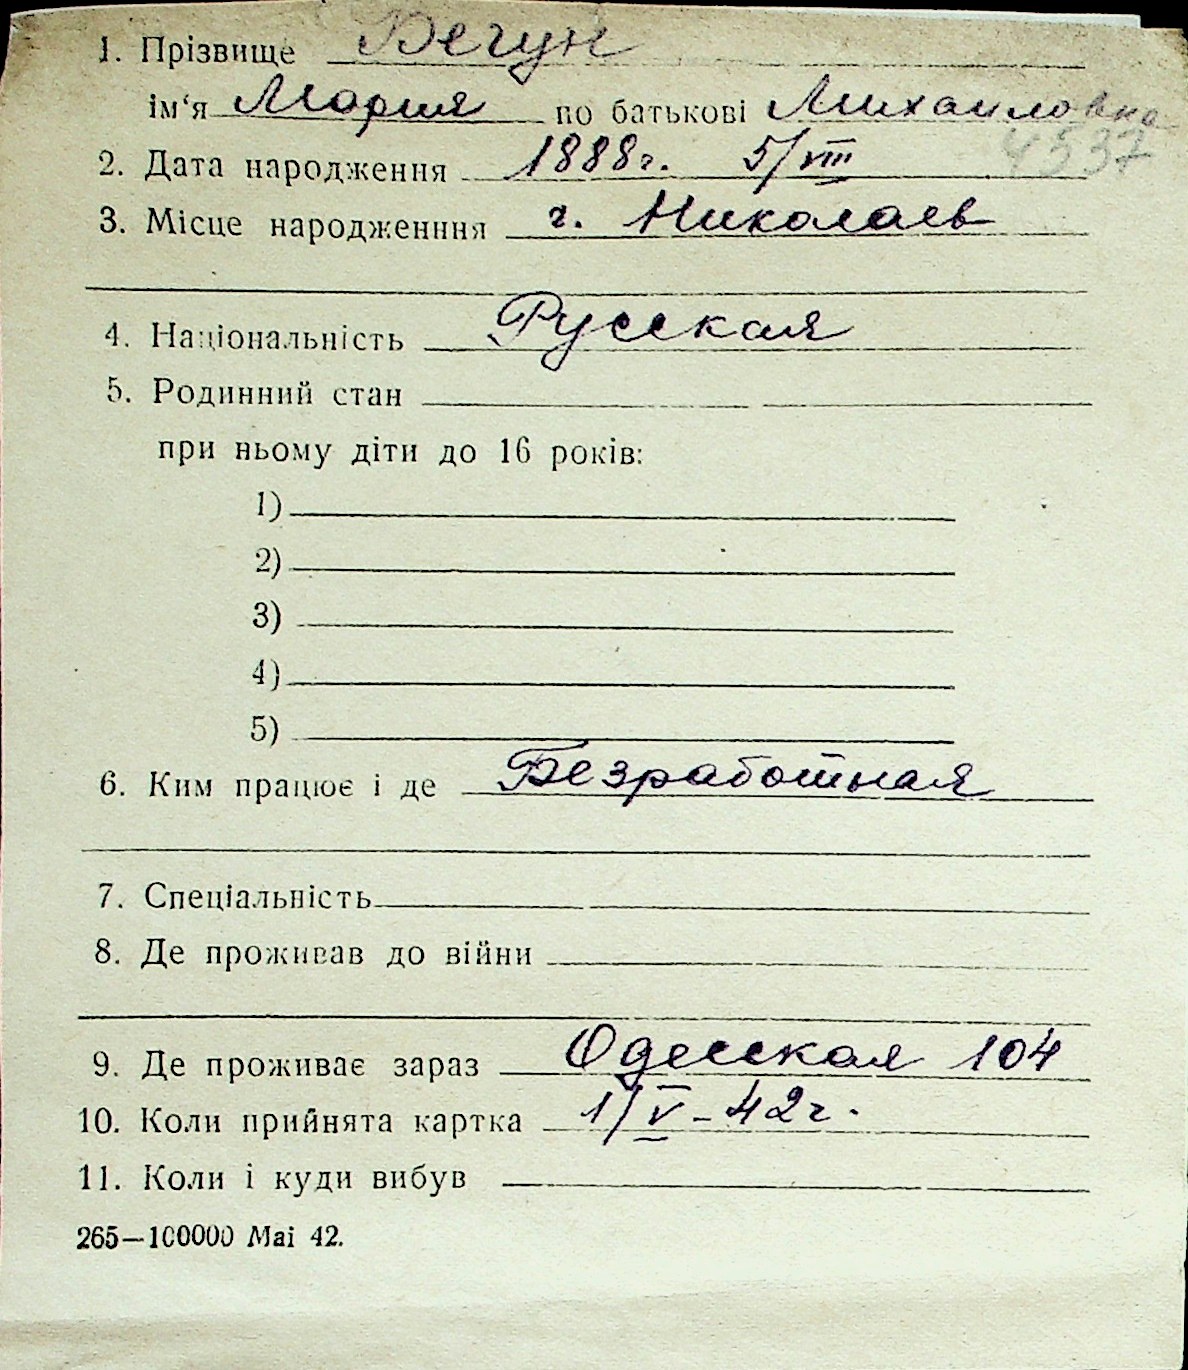 1. Прізвище Бегун
ім‘я Мария по батькові Михаиловна
4537
2. Дата народження 1888г. 5/VIII
3. Місце народженння г. Николаев
4. Національність Русская
5. Родинний стан
при ньому діти до 16 років:
1)
2)
3)
4)
5)
6. Ким працює і де Безработная
7. Спеціальність
8. Де проживав до війни
9. Де проживає зараз Одесская 104
10. Коли прийнята картка 1/V-42г.
11. Коли і куди вибув
265—100000 Mai 42.